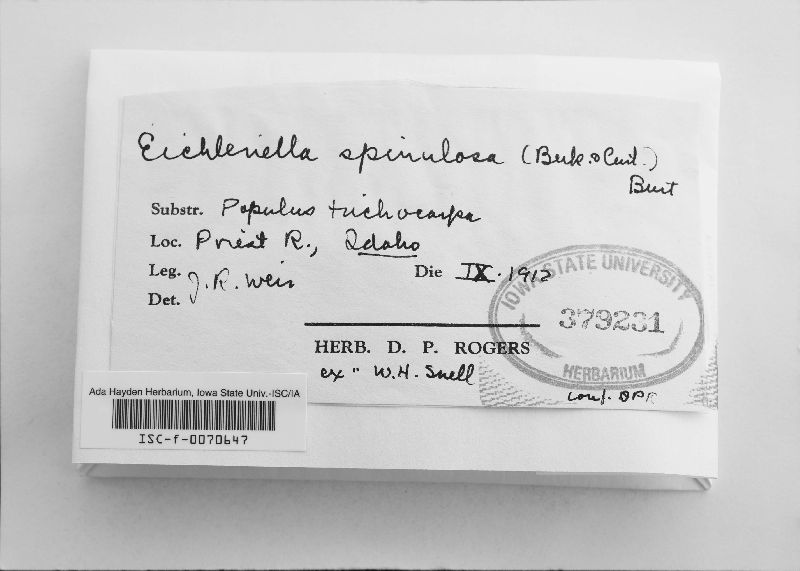 Eichleriella spinulosa (Berk. & Curt.)
Burt
Substr. Populus trichocarpa
Loc. Priest R., Idaho
Leg. J. R. Weir
Die IX. 1912
Det.
IOWA STATE UNIVERSITY
379231
HERBARIUM
HERB. D. P. ROGERS
ex " W.H. Snell
conf. DPR
Ada Hayden Herbarium, Iowa State Univ.-ISC/IA
ISC-f-0070647